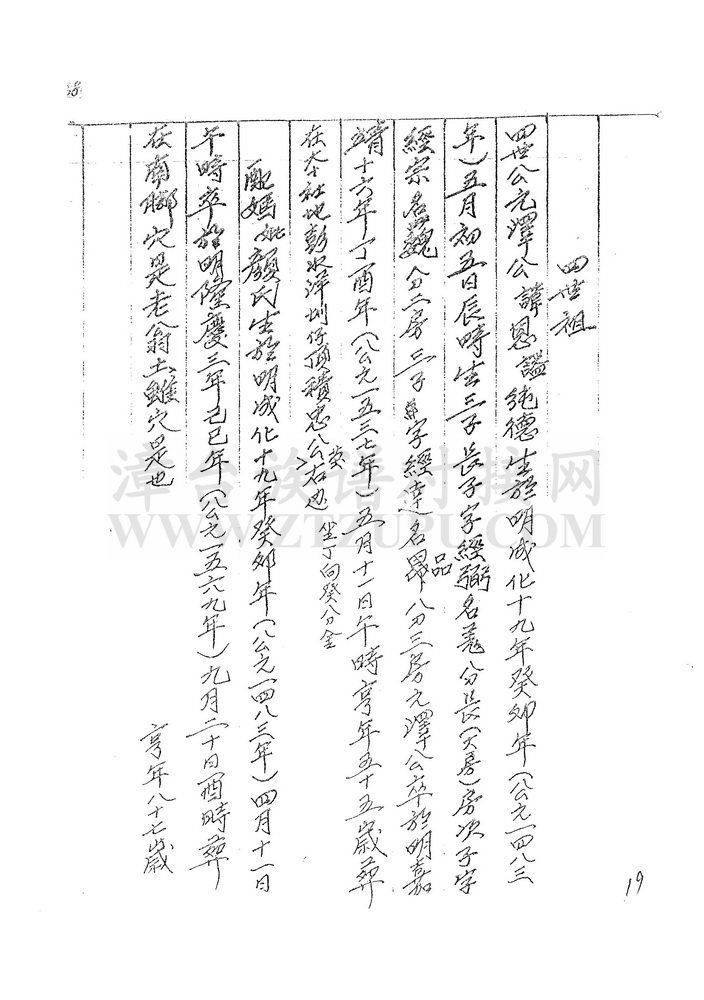 四世祖
四世公元澤公諱恩謚純德生於明成化十九年癸卯年(公元一四八三
年)五月初五日辰時生三子長子字經弼名義分長(大房)房次子字
經宗名巍分二房三子字經達名品分三房元澤公卒於明嘉
靖十六年丁酉年(公元一五三七年)五月十一日午時享年五十五歲葬
在大社地彭水洋圳仔頂積忠公塋右邊坐丁向癸分金
配媽妣顏氏生於明成化十九年癸卯年(公元一四八三年)四月十一日
午時卒於明隆慶三年己巳年(公元一五六九年)九月二十日酉時葬
在南腳穴是老翁土雖穴是也
享年八十七歲
19
漳台族谱对接网
WWW.ZTZUPU.COM